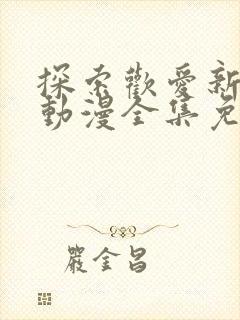 探索歡愛新
動漫全集免
嚴金昌